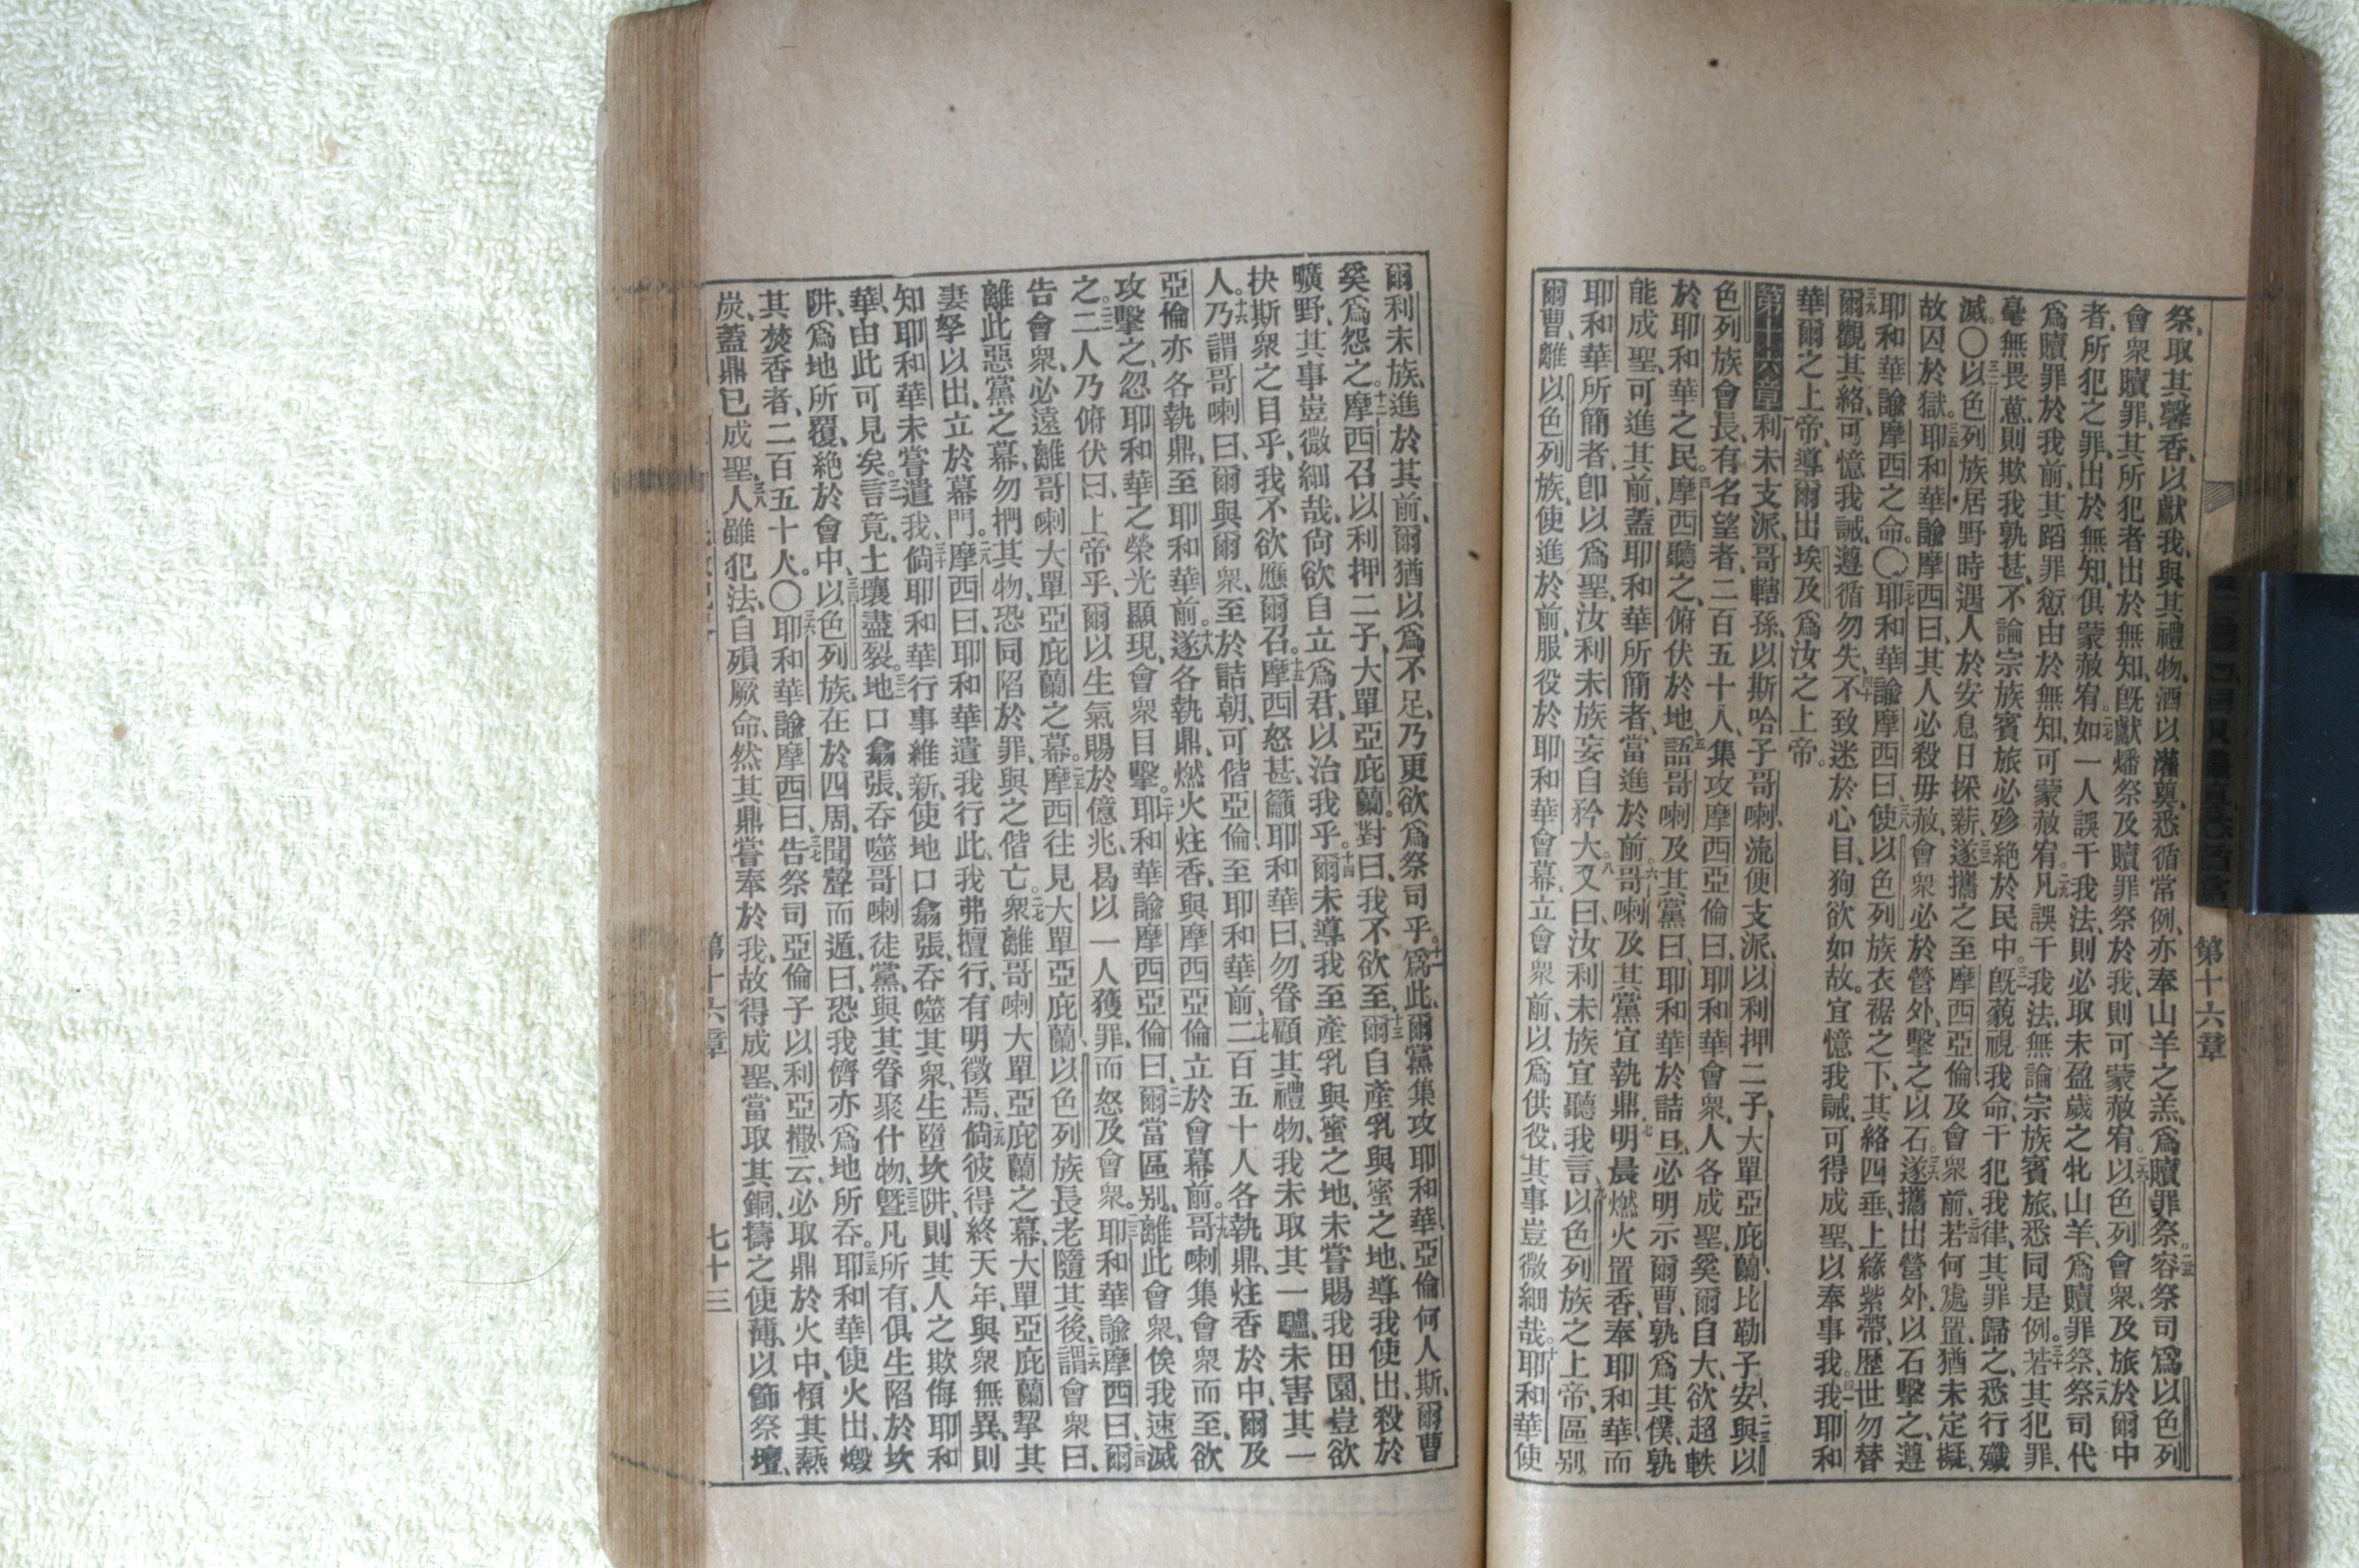 第十六章
祭、取其馨香、以獻我、與其禮物、酒以灌奠、悉循常例、亦奉山羊之羔、爲贖罪祭。二五容祭司爲以色列
會衆贖罪、其所犯者出於無知、旣獻燔祭及贖罪祭於我、則可蒙赦宥。二六以色列會衆、及旅於爾中
者、所犯之罪、出於無知、俱蒙赦宥。二七如一人誤干我法、則必取未盈歲之牝山羊、爲贖罪祭、二八祭司代
爲贖罪於我前、其蹈罪愆由於無知、可蒙赦宥、二九凡誤干我法、無論宗族賓旅、悉同是例。三十若其犯罪、
毫無畏葸、則欺我孰甚、不論宗族賓旅必殄絕於民中。三一旣藐視我命、干犯我律、其罪歸之、悉行殲
滅。〇三二以色列族居野時、遇人於安息日採薪、三三遂攜之至摩西亞倫及會衆前、三四若何處置、猶未定擬、
故囚於獄。三五耶和華諭摩西曰、其人必殺毋赦、會衆必於營外、擊之以石。三六遂攜出營外、以石擊之、遵
耶和華諭摩西之命。〇三七耶和華諭摩西曰、三八使以色列族衣裾之下、其綌四垂、上緣紫帶、歷世勿替
三九爾觀其綌、可憶我誡、遵循勿失、不致迷於心目、狥欲如故。四十宜憶我誡、可得成聖、以奉事我、四一我耶和
華爾之上帝、導爾出埃及、爲汝之上帝。
第十六章 一利未支派、哥轄孫、以斯哈子哥喇、流便支派、以利押二子、大單亞庇蘭、比勒子安、二三與以
色列族會長、有名望者、二百五十人、集攻摩西亞倫曰、耶和華會衆、人各成聖、奚爾自大、欲超軼
於耶和華之民。四摩西聽之、俯伏於地、五語哥喇及其黨曰、耶和華於詰旦、必明示爾曹、孰爲其僕、孰
能成聖、可進其前、蓋耶和華所簡者、當進於前、六哥喇及其黨宜執鼎、七明晨燃火置香、奉耶和華、而
耶和華所簡者、卽以爲聖、汝利未族妄自矜大。八又曰、汝利未族宜聽我言、九以色列族之上帝、區別
爾曹、離以色列族、使進於前、服役於耶和華會幕、立會衆前、以爲供役、其事豈微細哉。十耶和華使
爾利未族、進於其前、爾猶以爲不足、乃更欲爲祭司乎。十一爲此、爾黨集攻耶和華、亞倫何人斯、爾曹
奚爲怨之。十二摩西召以利押二子、大單亞庇蘭。對曰、我不欲至、十三爾自產乳與蜜之地、導我使出、殺於
曠野、其事豈微細哉、尙欲自立爲君、以治我乎。十四爾未導我至產乳與蜜之地、未嘗賜我田園、豈欲
抉斯衆之目乎、我不欲應爾召。十五摩西怒甚、籲耶和華曰、勿眷顧其禮物、我未取其一驢、未害其一
人。十六乃謂哥喇曰、爾與爾衆、至於詰朝、可偕亞倫、至耶和華前、十七二百五十人各執鼎、炷香於中、爾及
亞倫亦各執鼎、至耶和華前。十八遂各執鼎、燃火炷香、與摩西亞倫立於會幕前。十九哥喇集會衆而至、欲
攻擊之、忽耶和華之榮光顯現、會衆目擊。二十耶和華諭摩西亞倫曰、二一爾當區別、離此會衆、俟我速滅
之。二二二人乃俯伏曰、上帝乎、爾以生氣賜於億兆、曷以一人獲罪、而怒及會衆。二三耶和華諭摩西曰、二四爾
告會衆、必遠離哥喇大單亞庇蘭之幕。二五摩西往見大單亞庇蘭、以色列族長老隨其後、二六謂會衆曰、
離此惡黨之幕、勿捫其物、恐同陷於罪、與之偕亡。二七衆離哥喇大單亞庇蘭之幕、大單亞庇蘭挈其
妻孥以出、立於幕門。二八摩西曰、耶和華遣我行此、我弗擅行、有明徵焉、二九倘彼得終天年、與衆無異、則
知耶和華未嘗遣我、三十倘耶和華行事維新、使地口翕張、吞噬其衆、生墮坎阱、則其人之欺侮耶和
華、由此可見矣。三一言竟、土壤盡裂。三二地口翕張、吞噬哥喇徒黨、與其眷聚什物、三三曁凡所有、俱生陷於坎
阱、爲地所覆、絕於會中、三四以色列族在於四周、聞聲而遁、曰、恐我儕亦爲地所吞。三五耶和華使火出、燬
其焚香者、二百五十人。〇三六耶和華諭摩西曰、三七告祭司亞倫子以利亞撒云、必取鼎於火中、傾其爇
炭、蓋鼎已成聖、三八人雖犯法、自殞厥命、然其鼎嘗奉於我、故得成聖、當取其銅、擣之使薄、以飾祭壇、
第十六章
七十三